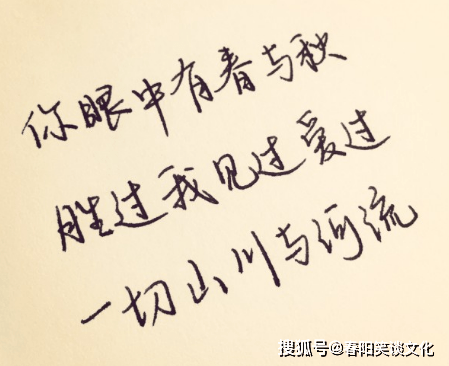 你眼中有春与秋
胜过我见过爱过
一切山川与河流
搜狐号@春阳笑谈文化